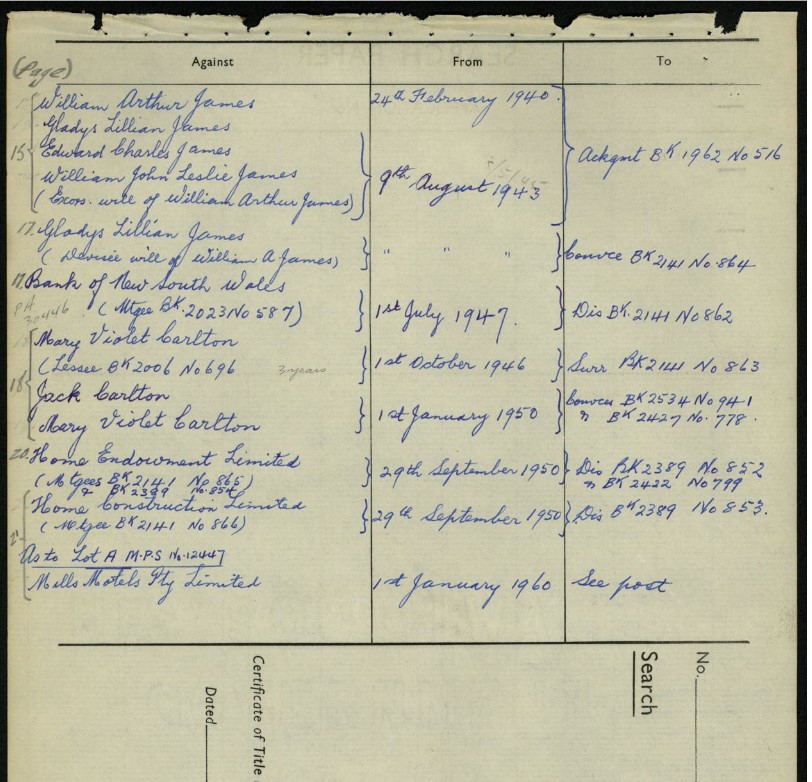 (Page) Against From To
William Arthur James 24th February 1940.
Gladys Lillian James
15 Edward Charles James Ackgmt BK 1962 No 516
William John Leslie James 9th August 1943
(Exors. write of William Arthur James)
17. Gladys Lillian James
(Devisee will of William A James) " " " Convce BK 2141 No. 864
17. Bank of New South Wales
PA 30446 (Mtgee BK. 2023 No 587) 1st July 1947. Dis BK. 2141 No 862
Mary Violet Carlton
(Lessee BK 2006 No 696 3 years 1st October 1946 Surr BK 2141 No 863
18 Jack Carlton Convces BK 2534 No 941
Mary Violet Carlton 1st January 1950 " BK 2427 No. 778.
20. Home Endowment Limited
(Mtgees BK 2141 No 865) 29th September 1950 Dis BK 2389 No 852
& BK 2389 No. 854 " BK 2422 No 799
Home Construction Limited
(Mtgee BK 2141 No 866) 29th September 1950 Dis BK 2389 No 853.
As to Lot A M.P.S No. 12447
Mills Motels Pty Limited 1st January 1960 See post
No.
Search
Certificate of Title
Dated